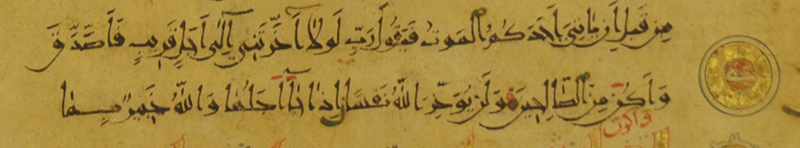 مِن قَبلِ أَن يَأتِيَ أَحَدَكُمُ المَوتُ فَيَقُولَ رَبِّ لَولَا أَخَّرتَنِي إِلَى أَجَلٍ قَرِيبٍ فَأَصَّدَّقَ
وَأَكُن مِنَ الصَّالِحِينَ وَلَن يُؤَخِّرَ اللَّهُ نَفسًا إِذَا جَاءَ أَجَلُهَا وَاللَّهُ خَبِيرٌ بِمَا
واكون